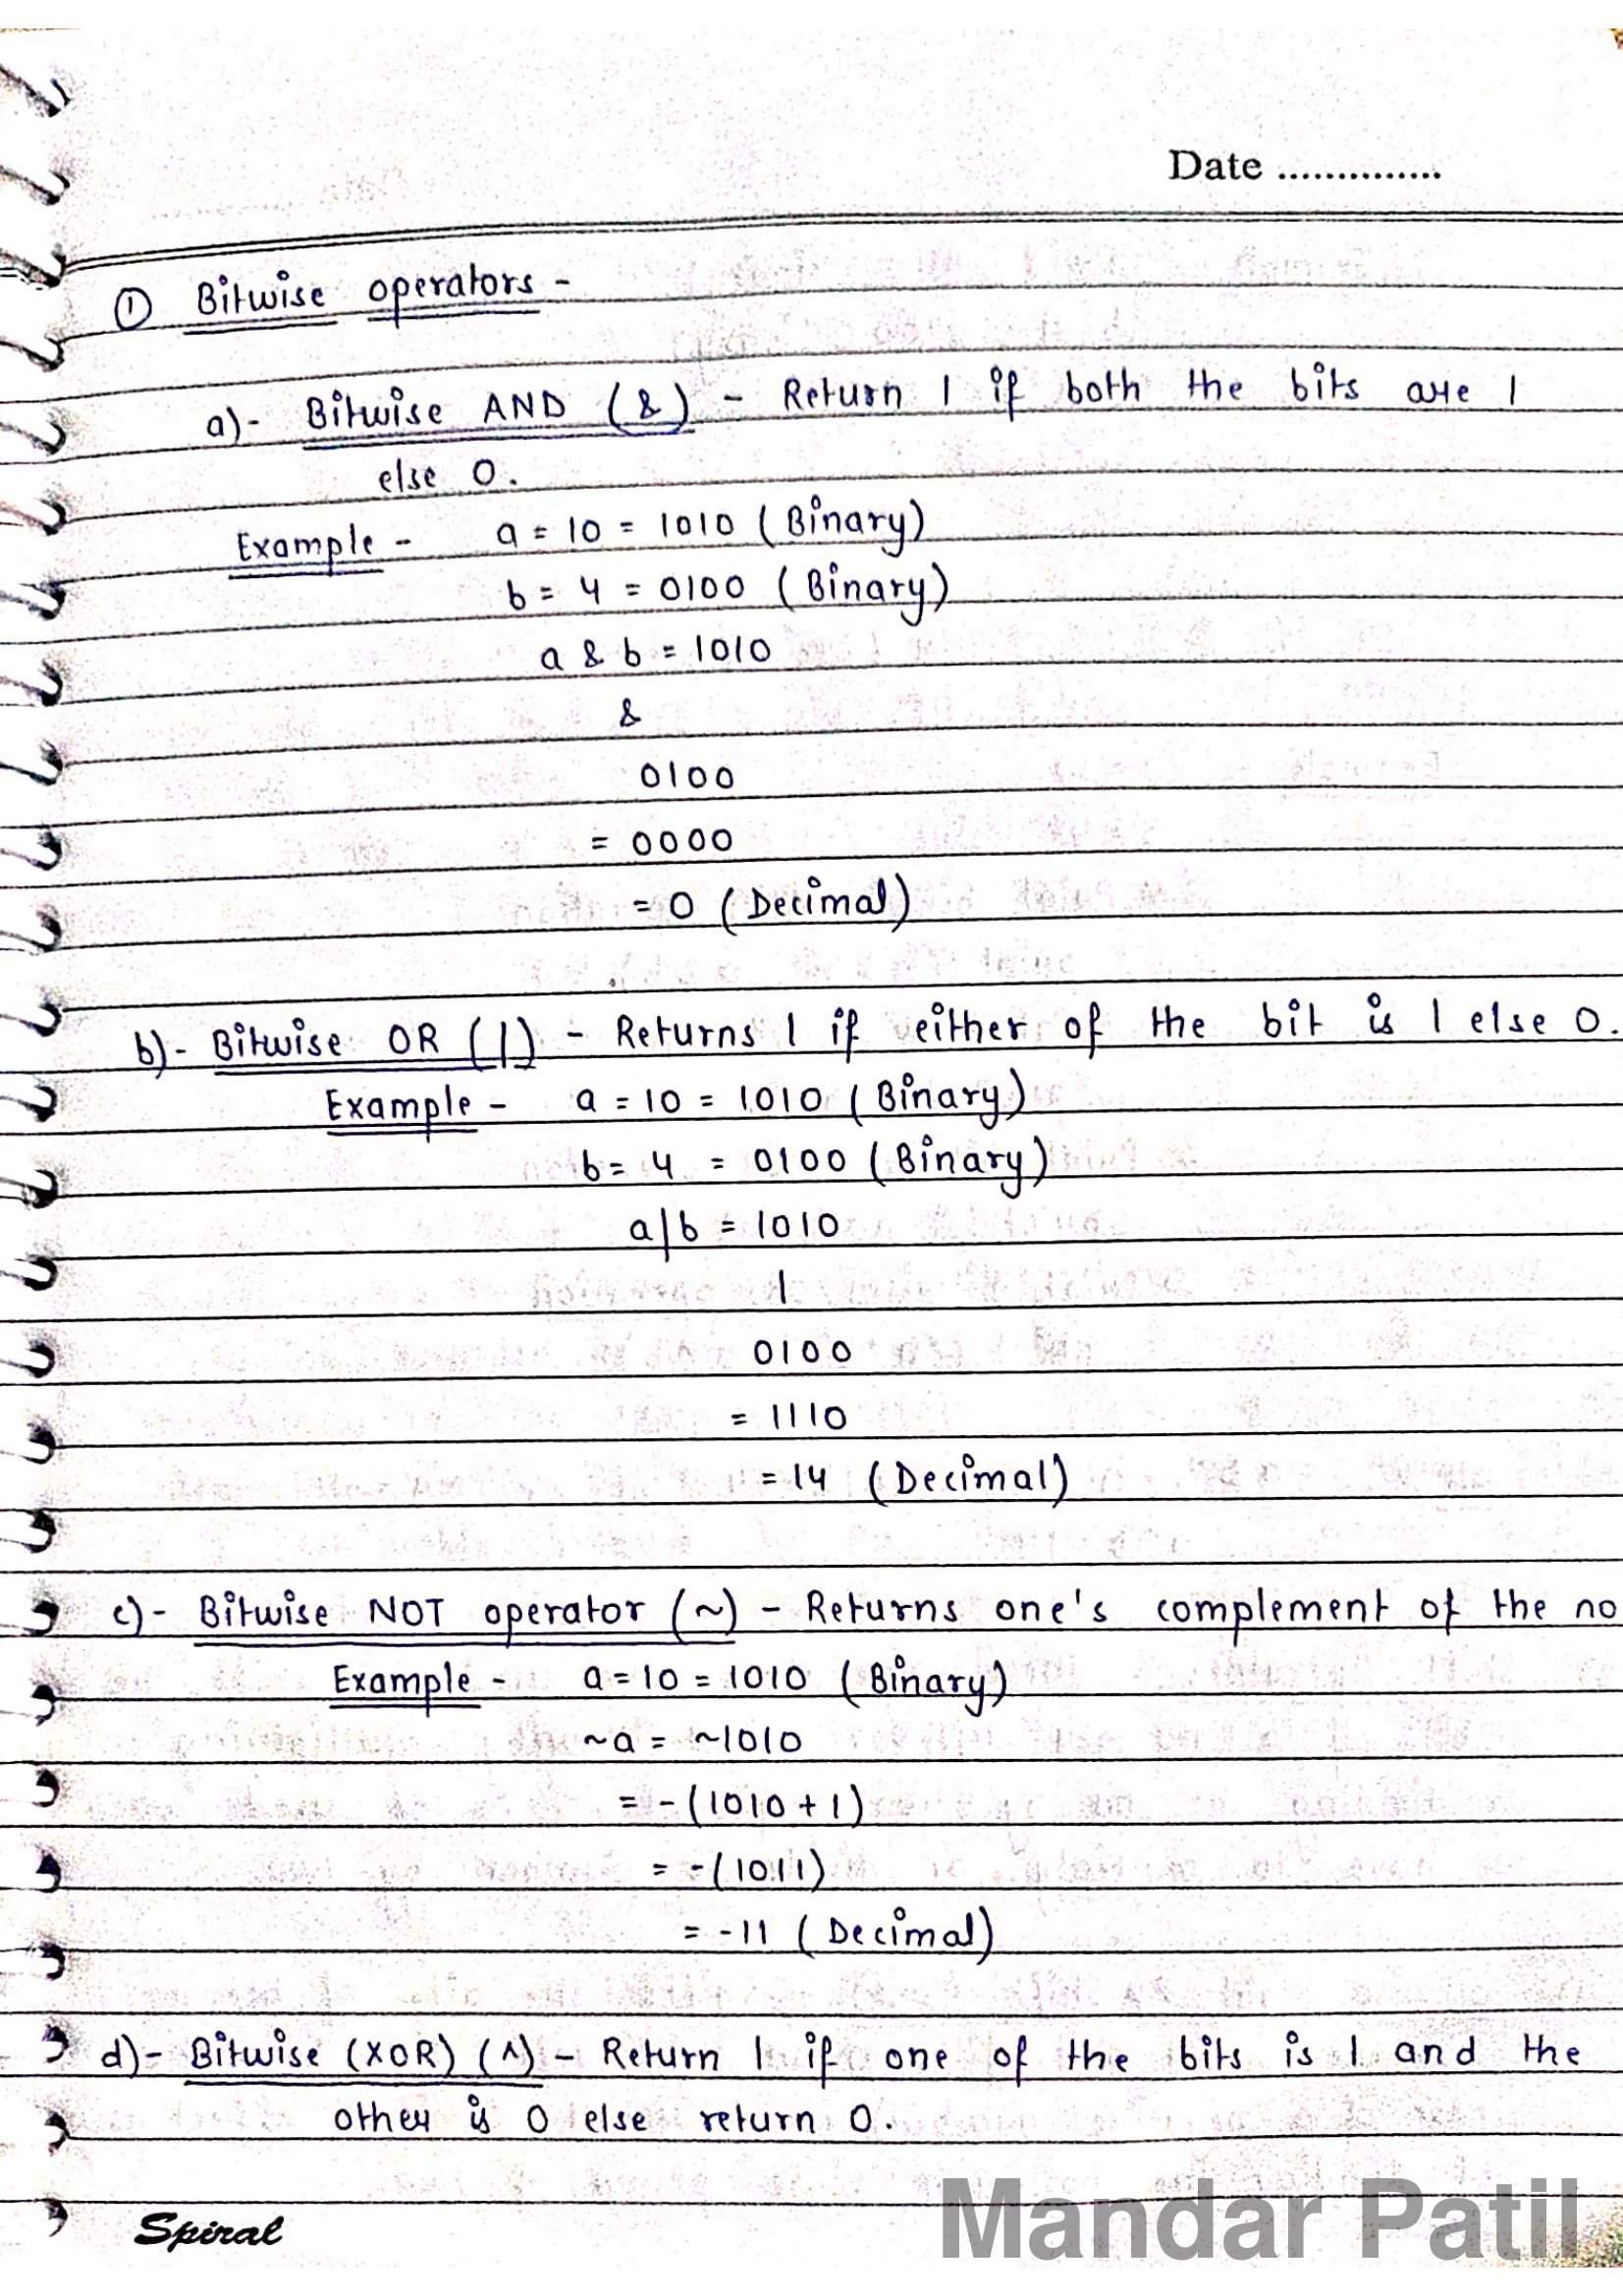 Date ..............
① Bitwise operators -
a)- Bitwise AND (&) - Return 1 if both the bits are 1
else 0.
Example - a = 10 = 1010 (Binary)
b = 4 = 0100 (Binary)
a & b = 1010
&
0100
= 0000
= 0 (Decimal)
b)- Bitwise OR (|) - Returns 1 if either of the bit is 1 else 0.
Example - a = 10 = 1010 (Binary)
b = 4 = 0100 (Binary)
a|b = 1010
|
0100
= 1110
= 14 (Decimal)
c)- Bitwise NOT operator (~) - Returns one's complement of the no
Example - a = 10 = 1010 (Binary)
~a = ~1010
= -(1010 + 1)
= -(1011)
= -11 (Decimal)
d)- Bitwise (XOR) (^) - Return 1 if one of the bits is 1 and the
other is 0 else return 0.
Spiral
Mandar Patil